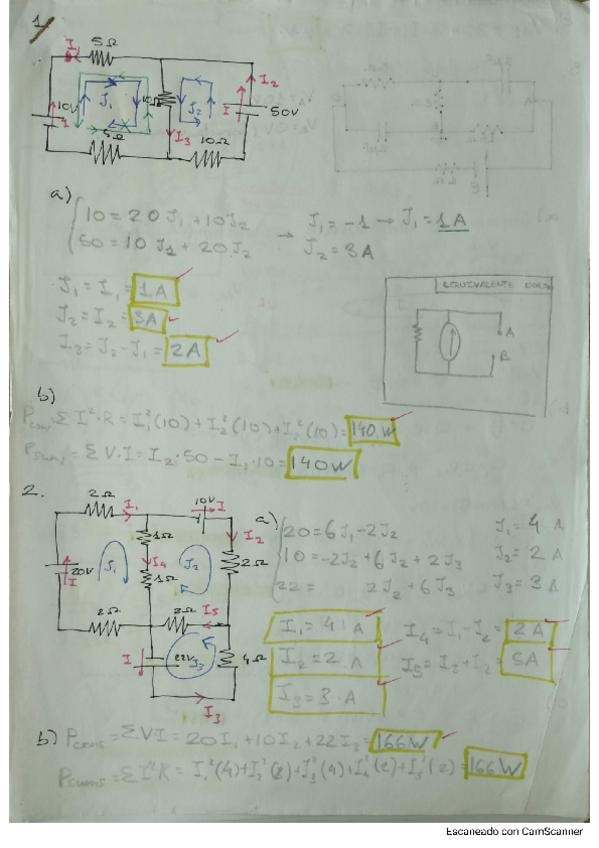 1
5Ω
I₁
I₂
10V
J₁
10Ω
J₂
I
50V
5Ω
I₃
10Ω
a)
10 = 20 J₁ + 10J₂ → J₁ = -1 → J₁ = 1A
50 = 10 J₁ + 20J₂ J₂ = 3A
J₁ = I₁ = 1A
J₂ = I₂ = 3A
I₃ = J₂ - J₁ = 2A
EQUIVALENTE
A
B
b)
ΣI²·R = I₁²(10) + I₂²(10) + I₃²(10) = 140W
= ΣV·I = I₂·50 - I₁·10 = 140W
2.
2Ω
I₁
10V
I
1Ω
I₂
20V
I
J₁
I₄
1Ω
J₂
2Ω
2Ω
2Ω
I₅
I
22V
J₃
4Ω
I₃
a)
20 = 6J₁ - 2J₂ J₁ = 4 A
10 = -2J₁ + 6J₂ + 2J₃ J₂ = 2 A
22 = 2J₂ + 6J₃ J₃ = 3 A
I₁ = 4 A I₄ = I₁ - I₂ = 2A
I₂ = 2 A I₅ = I₃ + I₂ = 5A
I₃ = 3 A
b) Pcons = ΣV·I = 20I₁ + 10I₂ + 22I₃ = 166W
= ΣI²R = I₁²(4) + I₂²(2) + I₃²(4) + I₄²(2) + I₅²(2) = 166W
Escaneado con CamScanner